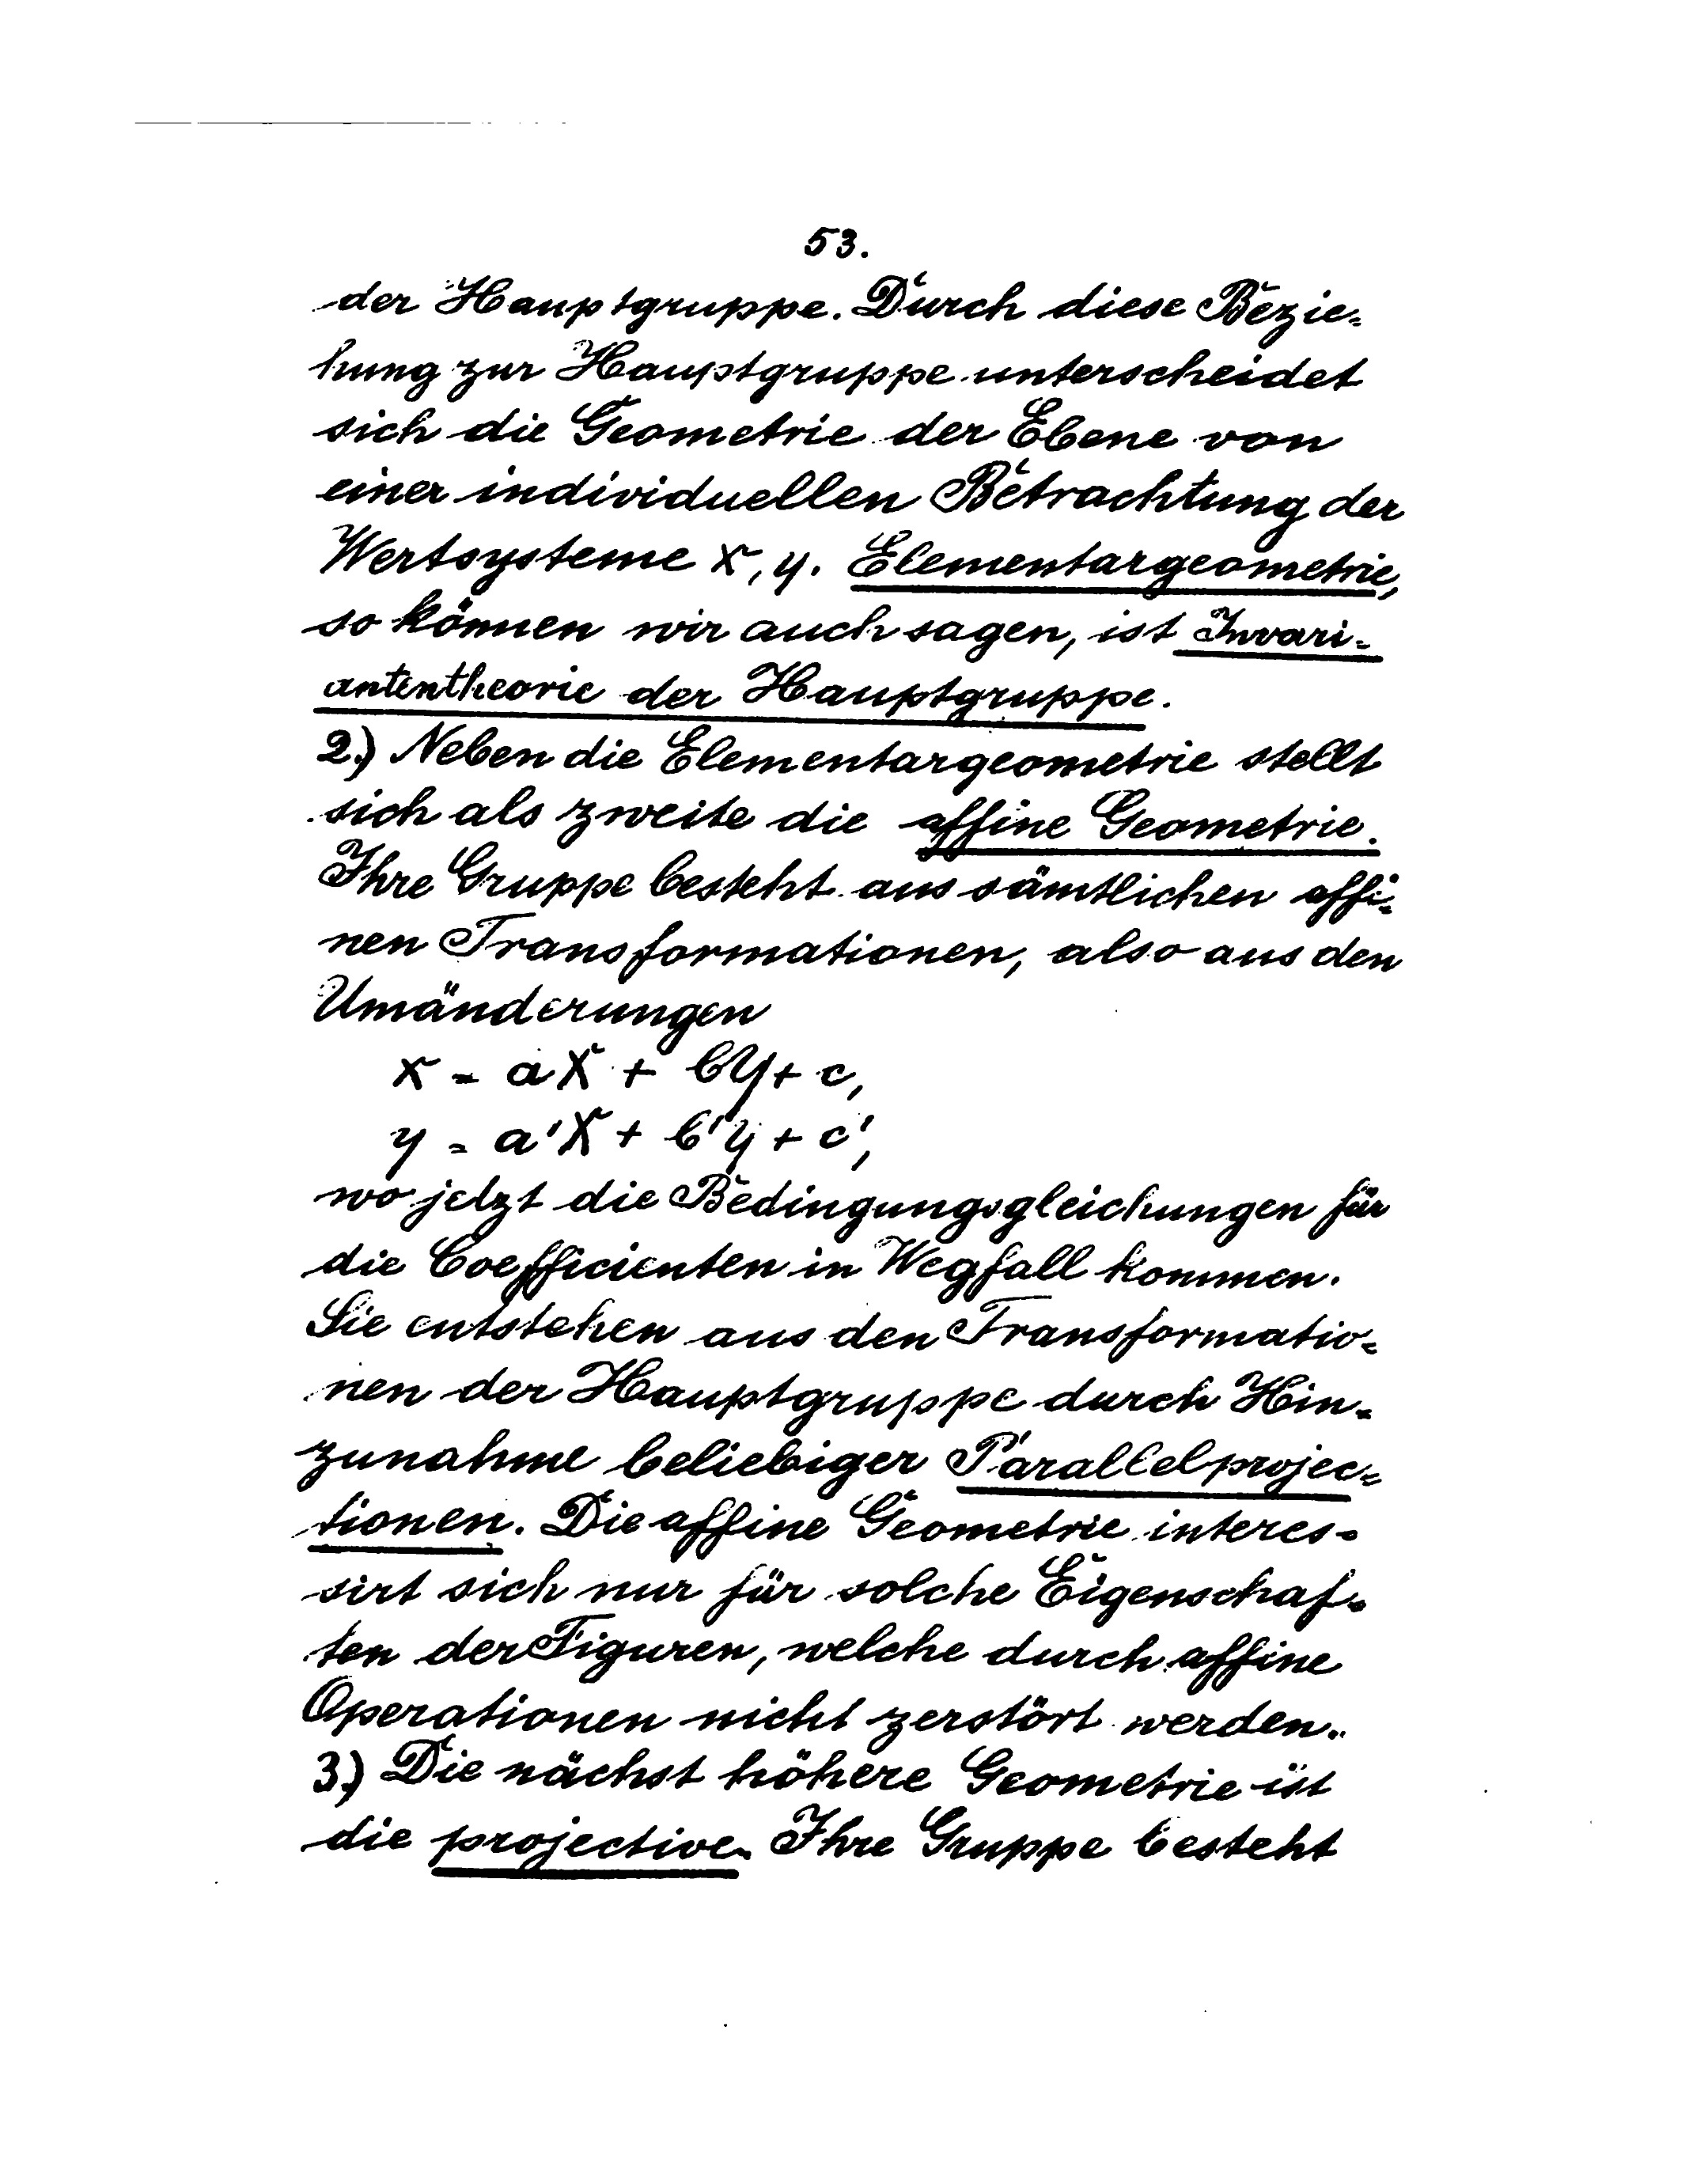 53.
der Hauptgruppe. Durch diese Bezie=
hung zur Hauptgruppe unterscheidet
sich die Geometrie der Ebene von
einer individuellen Betrachtung der
Wertsysteme x, y. Elementargeometrie,
so können wir auch sagen, ist Invari=
antentheorie der Hauptgruppe.
2.) Neben die Elementargeometrie stellt
sich als zweite die affine Geometrie.
Ihre Gruppe besteht aus sämtlichen affi=
nen Transformationen, also aus den
Umänderungen
x = aX + bY + c,
y = a'X + b'Y + c',
wo jetzt die Bedingungsgleichungen für
die Coefficienten in Wegfall kommen.
Sie entstehen aus den Transformatio=
nen der Hauptgruppe durch Hin=
zunahme beliebiger Parallelprojec=
tionen. Die affine Geometrie interes=
sirt sich nur für solche Eigenschaf=
ten der Figuren, welche durch affine
Operationen nicht zerstört werden.
3.) Die nächst höhere Geometrie ist
die projective. Ihre Gruppe besteht